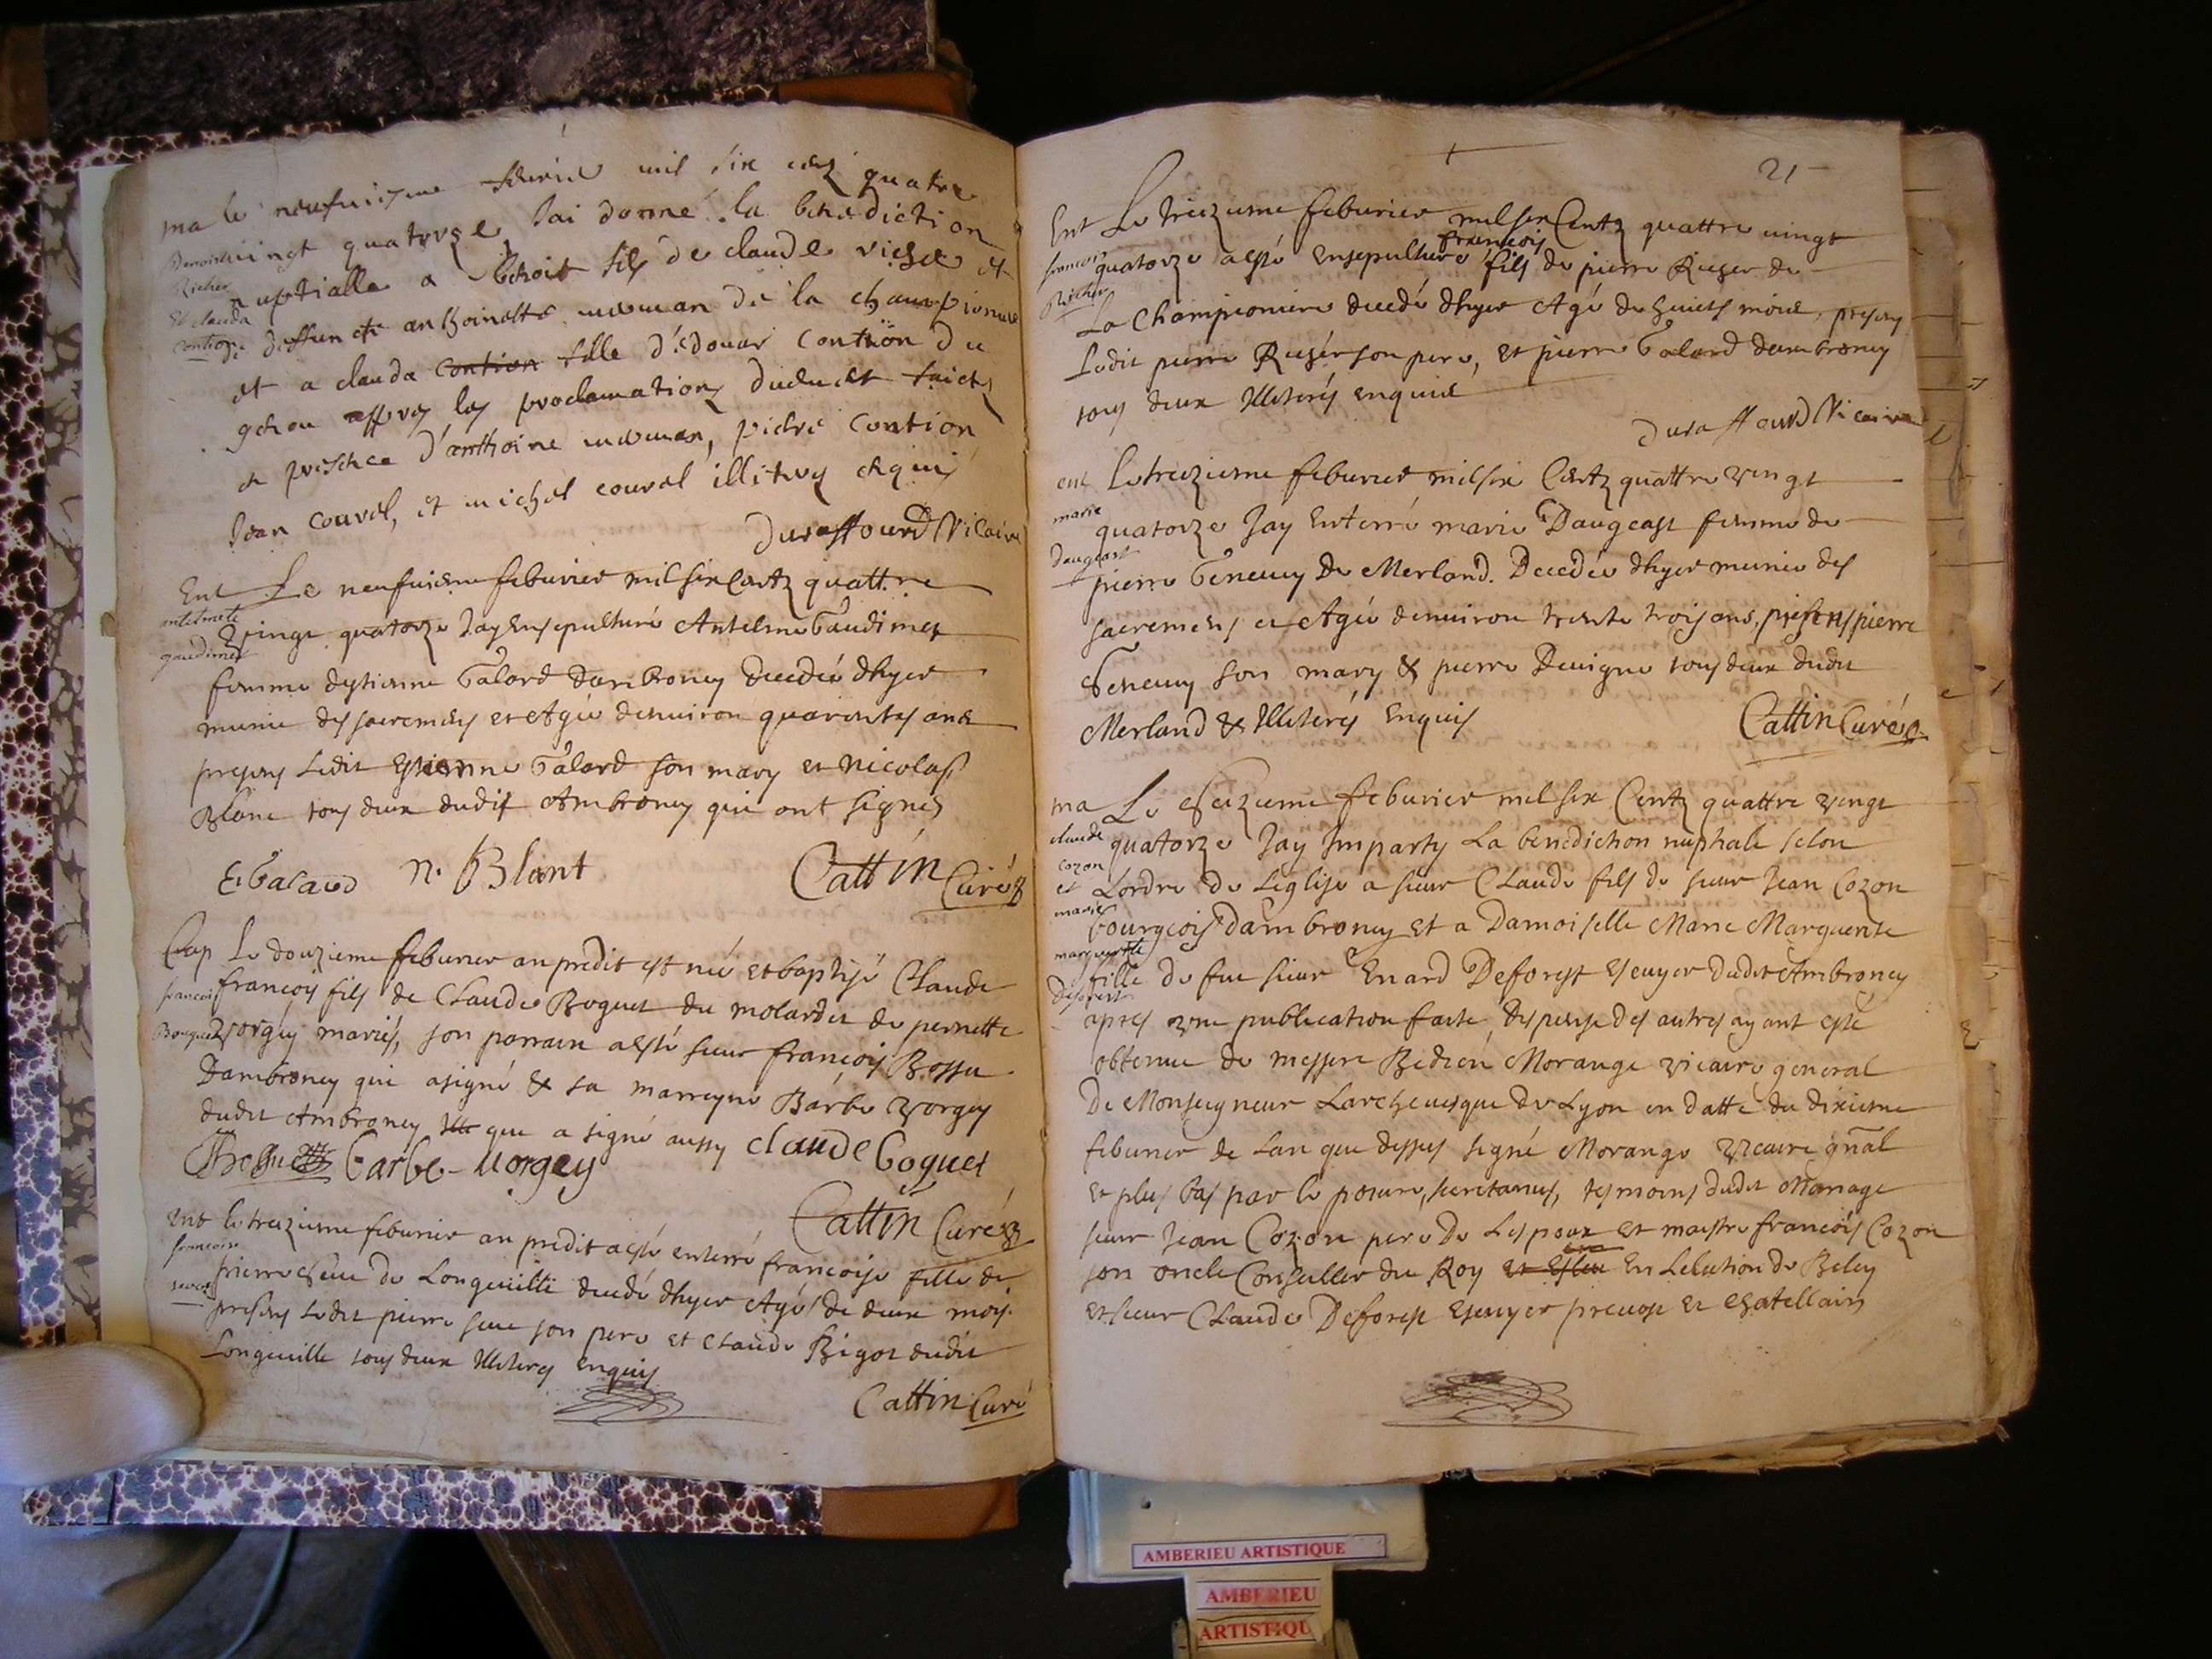 ma le neufuiesme feburié mil six centz quatre
Benoist
Richer
et clauda
contion
vingt quatorze, J'ai donné la benediction
nuptialle a Benoit fils de claude Richer et
de deffuncte anthoinette merman de la championiere
et a clauda contion fille d'édouar Contion du
gehou appres les proclamations duement faictes
en presence d'anthoine merman, pierre Contion
Jean couvel, et michel couvel illiterés enquis
Duraffourd Vicaire
Ent Le neufuiesme feburier mil six Centz quattre
antelmete
gaudimet
Vingt quatorze Jay Ensepulturé Antelme Gaudimet
femme destienne Galard dambroney decedée dhyer
munie des sacremens et Agée denuiron quarentes ans
presens Ledit Estienne Galard son mary et Nicolas
Blanc tous deux dudit Ambroney qui ont signés
E. Galard n. Blant Cattin Curé
Bap Le douzieme feburier an predit est né et baptisé Claude
francois
Boquet
francois fils de Claude Boquet du molard et de pernette
Vorgey mariés, son parrain a esté sieur francois Bossu
Dambroney qui a signé & sa marreyne Barbe Vorgey
dudit Ambroney que a signé aussy claude boquet
Bossu barbe uorgey
Cattin Curé
ent le treizieme feburier an predit a esté enterré francoise fille de
francoise
pierre seue de Longeuille decedé dhyer Agé de deux mois.
presens Ledit pierre seue son pere et claude Bigot dudit
Longeuille tous deux Illiterés enquis
Cattin Curé
21
Ent Le treizieme feburier mil six Centz quattre uingt
francois
Richer
quatorze a esté ensepulturé francois fils de pierre Richer de
La Championiere decedé dhyer Agé de huict mois, presens
Ledit pierre Richer son pere, et pierre Galard dambroney
tous deux Illiterés enquis
Duraffourd Vicaire
ent Le treizieme feburier mil six Centz quattre Vingt
marie
Daugeast
quatorze Jay Enterré marie Daugeast femme de
pierre Geneuy De Merland. Decedée dhyer munie des
sacremens et Agée denuiron trente trois ans, presens pierre
Geneuy son mary & pierre Deuigne tous deux dudit
Merland & Illiterés Enquis Cattin Curé
ma Le Seizieme feburier mil six Centz quattre Vingt
claude
cozon
et
marie
marguerite
deforest
quatorze Jay Imparty La benediction nuptiale selon
Lordre de Leglise a sieur Claude fils de sieur Jean Cozon
bourgeois dambroney et a Damoiselle Marie Marguerite
fille de feu sieur Enard Deforest Escuyer dudit Ambroney
apres Vne publication faite, dispense des autres ayant esté
obtenue de messire Bedien Morange Vicaire general
De Monseigneur Larcheuesque de Lyon en datte du dixieme
feburier de Lan que dessus signé Morange Vicaire gnal
et plus bas par le secretaires, tesmoins dudit Mariage
sieur Jean Cozon pere de Lespoux et maistre francois Cozon
son oncle Conseiller du Roy et Esleu En Lelection de Beley
et sieur Claude Deforest Escuyer preuost et chatellain
AMBERIEU ARTISTIQUE
AMBERIEU
ARTISTIQU